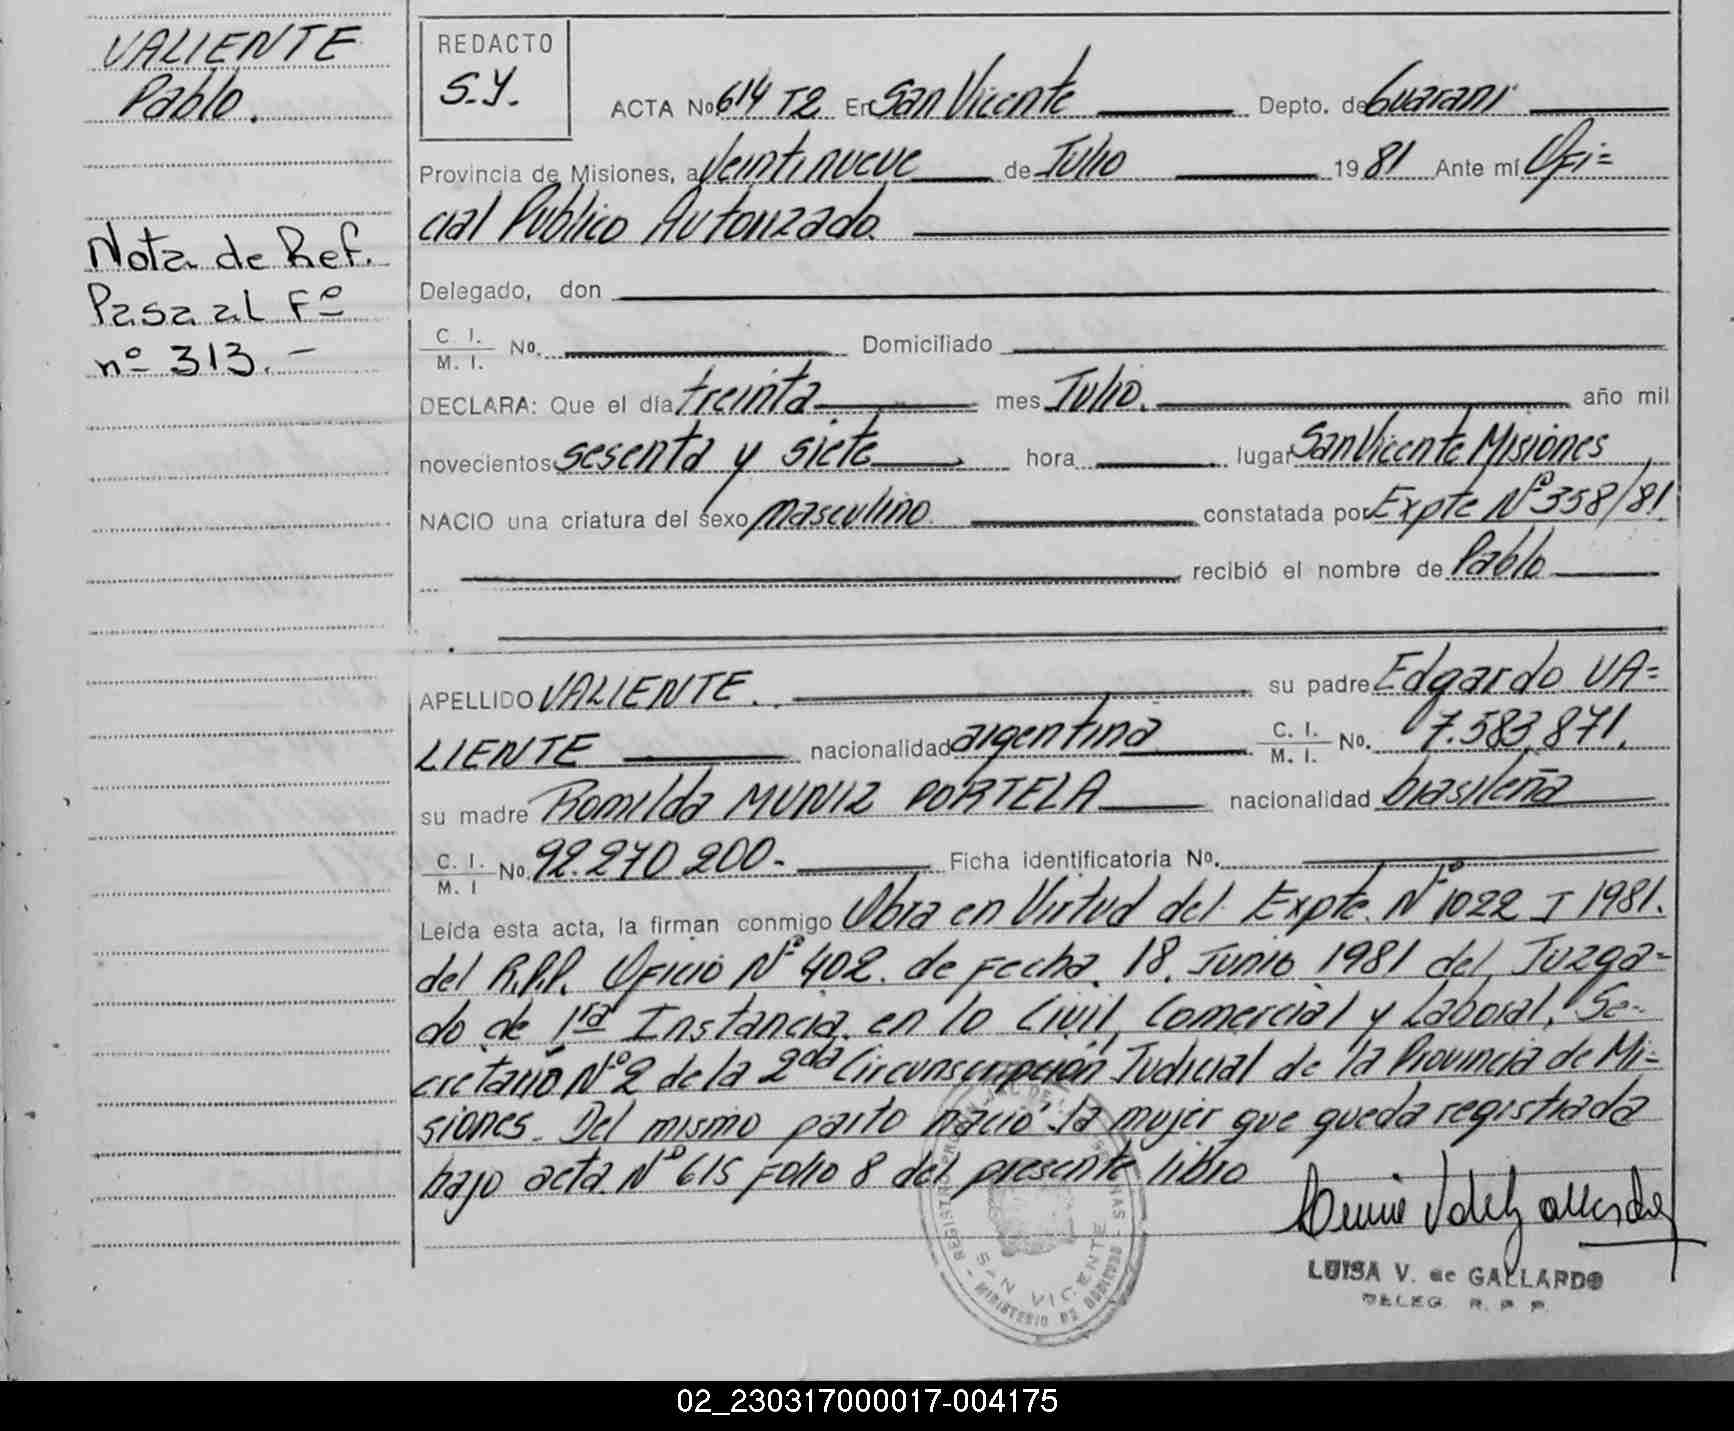 VALIENTE
Pablo.
Nota de Ref.
Pasa al Fº
nº 313.-
REDACTO
S.Y.
ACTA No 614 T2 En San Vicente Depto. de Guarani
Provincia de Misiones, a Veintinueve de Julio 1981 Ante mí Ofi=
cial Publico Autorizado
Delegado, don
C. I.
M. I. No. Domiciliado
DECLARA: Que el día treinta mes Julio. año mil
novecientos sesenta y siete hora lugar San Vicente Misiones
NACIO una criatura del sexo masculino constatada por Expte Nº 358/81
recibió el nombre de Pablo
APELLIDO VALIENTE. su padre Edgardo VA=
LIENTE nacionalidad argentina C. I. M. I. No. 7.583.871.
su madre Romilda MUNIZ PORTELA nacionalidad brasileña
C. I. M. I No. 92.270.200.- Ficha identificatoria No.
Leída esta acta, la firman conmigo Obra en Virtud del Expte. Nº 1022 I 1981.
del R.P.P. Oficio Nº 402. de Fecha 18 Junio 1981 del Juzga=
do de 1ra Instancia en lo Civil, Comercial y Laboral, Se-
cretario Nº 2 de la 2da Circunscripción Judicial de la Provincia de Mi=
siones. Del mismo parto nació la mujer que queda registrada
bajo acta Nº 615 Folio 8 del presente libro
SAN VICENTE
MINISTERIO DE GOBIERNO
LUISA V. de GALLARDO
DELEG. R. P. P.
02_230317000017-004175